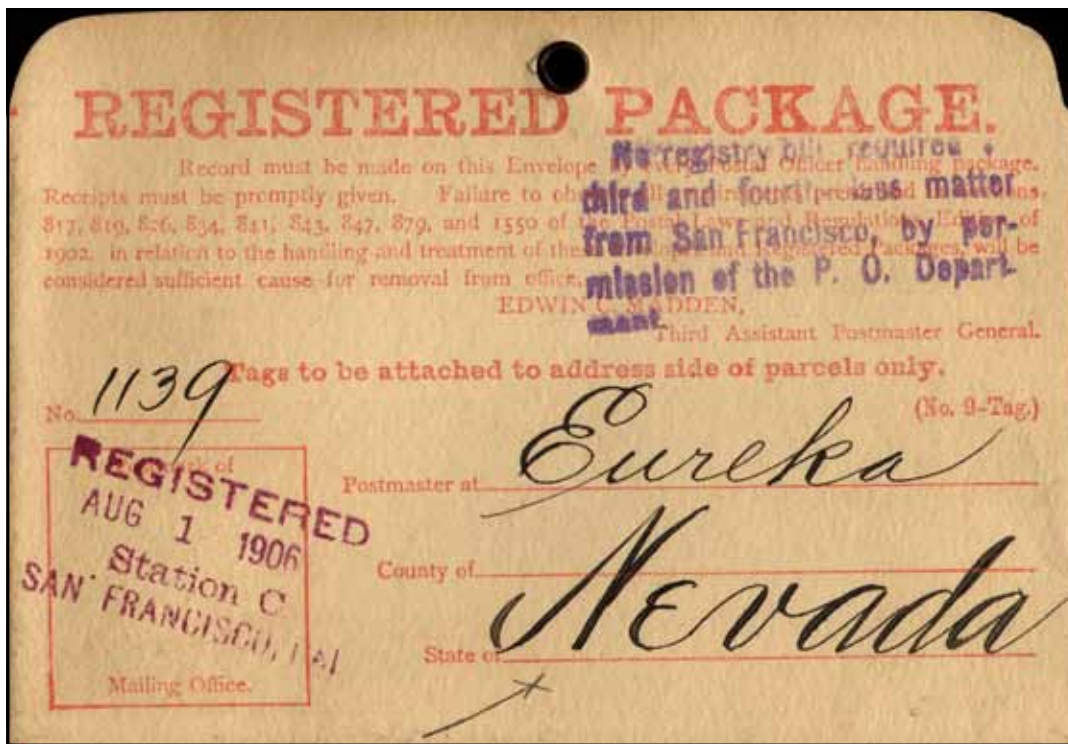 REGISTERED PACKAGE.
Record must be made on this Envelope Postal Officer handling package.
Receipts must be promptly given. Failure to
817, 819, 826, 834, 841, 843, 847, 879, and 1550 of Postal Laws and Regulations, of
1902, in relation to the handling and treatment of Registered Packages, will be
considered sufficient cause for removal from office.
EDWIN C. MADDEN,
Third Assistant Postmaster General.
No registry bill required
third and fourth class matter
from San Francisco, by per-
mission of the P. O. Depart-
ment.
Tags to be attached to address side of parcels only.
No. 1139
(No. 9-Tag.)
of
REGISTERED
AUG 1 1906
Station C
SAN FRANCISCO, CAL
Mailing Office.
Postmaster at Eureka
County of
State of Nevada